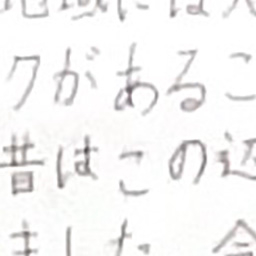 地域には
クがあるこ
昔はこの辺
ました。今